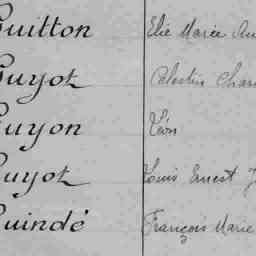 Guitton Elie Marie
Guyot Célestin
Guyon Léon
Guyot Louis Ernest
Guindé François Marie